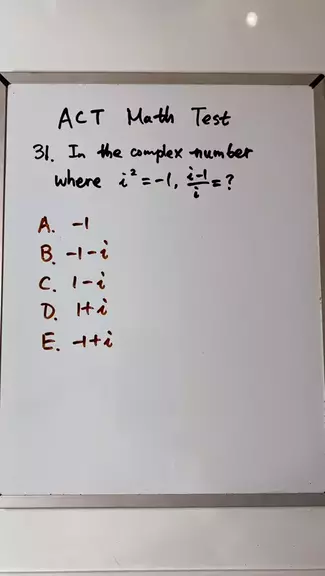 ACT Math Test
31. In the complex number
where i² = -1, (i-1)/i = ?
A. -1
B. -1-i
C. 1-i
D. 1+i
E. -1+i